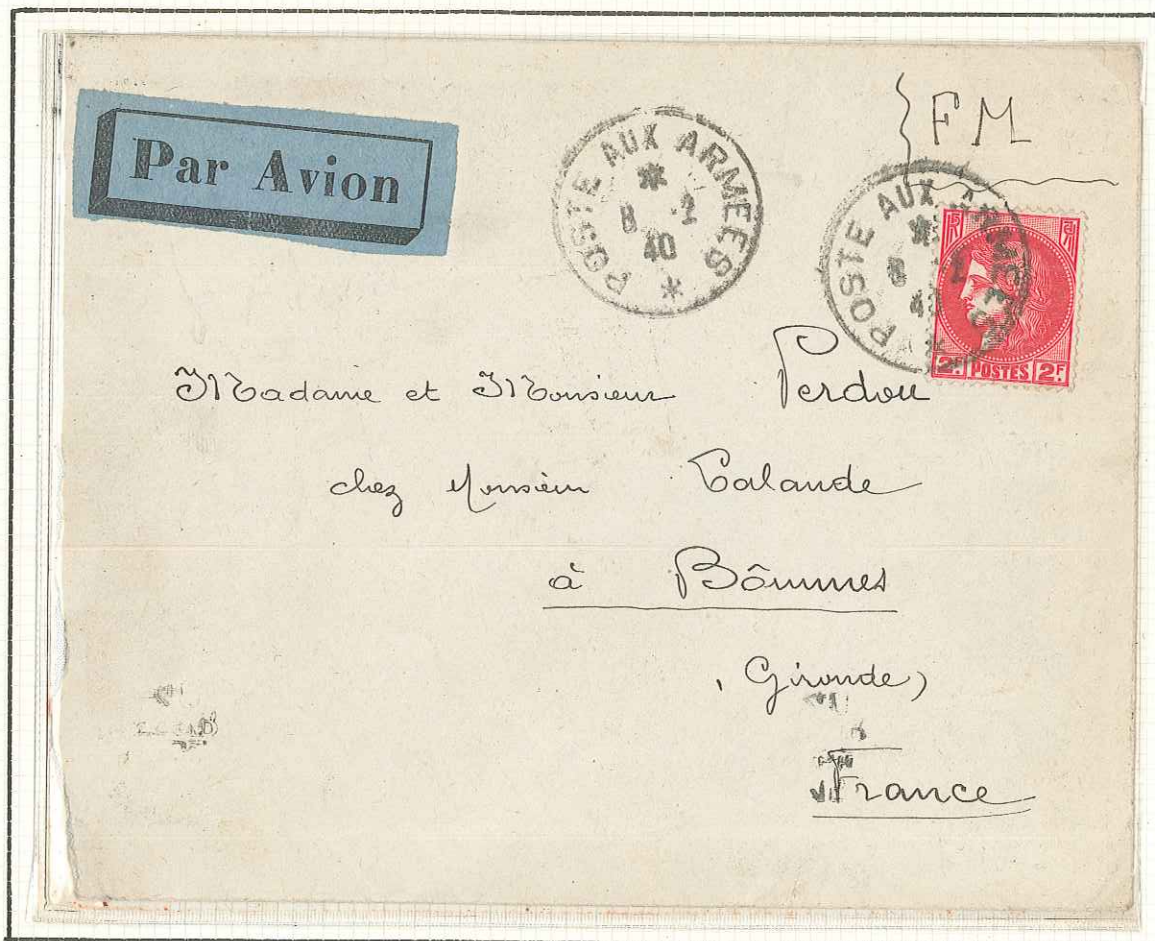 Par Avion
POSTE AUX ARMEES
*
8 2
40
*
FM
POSTE AUX ARMEES
*
8 2
40
RF
2F. POSTES 2F
Madame et Monsieur Perdou
chez Monsieur Calande
à Bômmes
(Gironde)
France